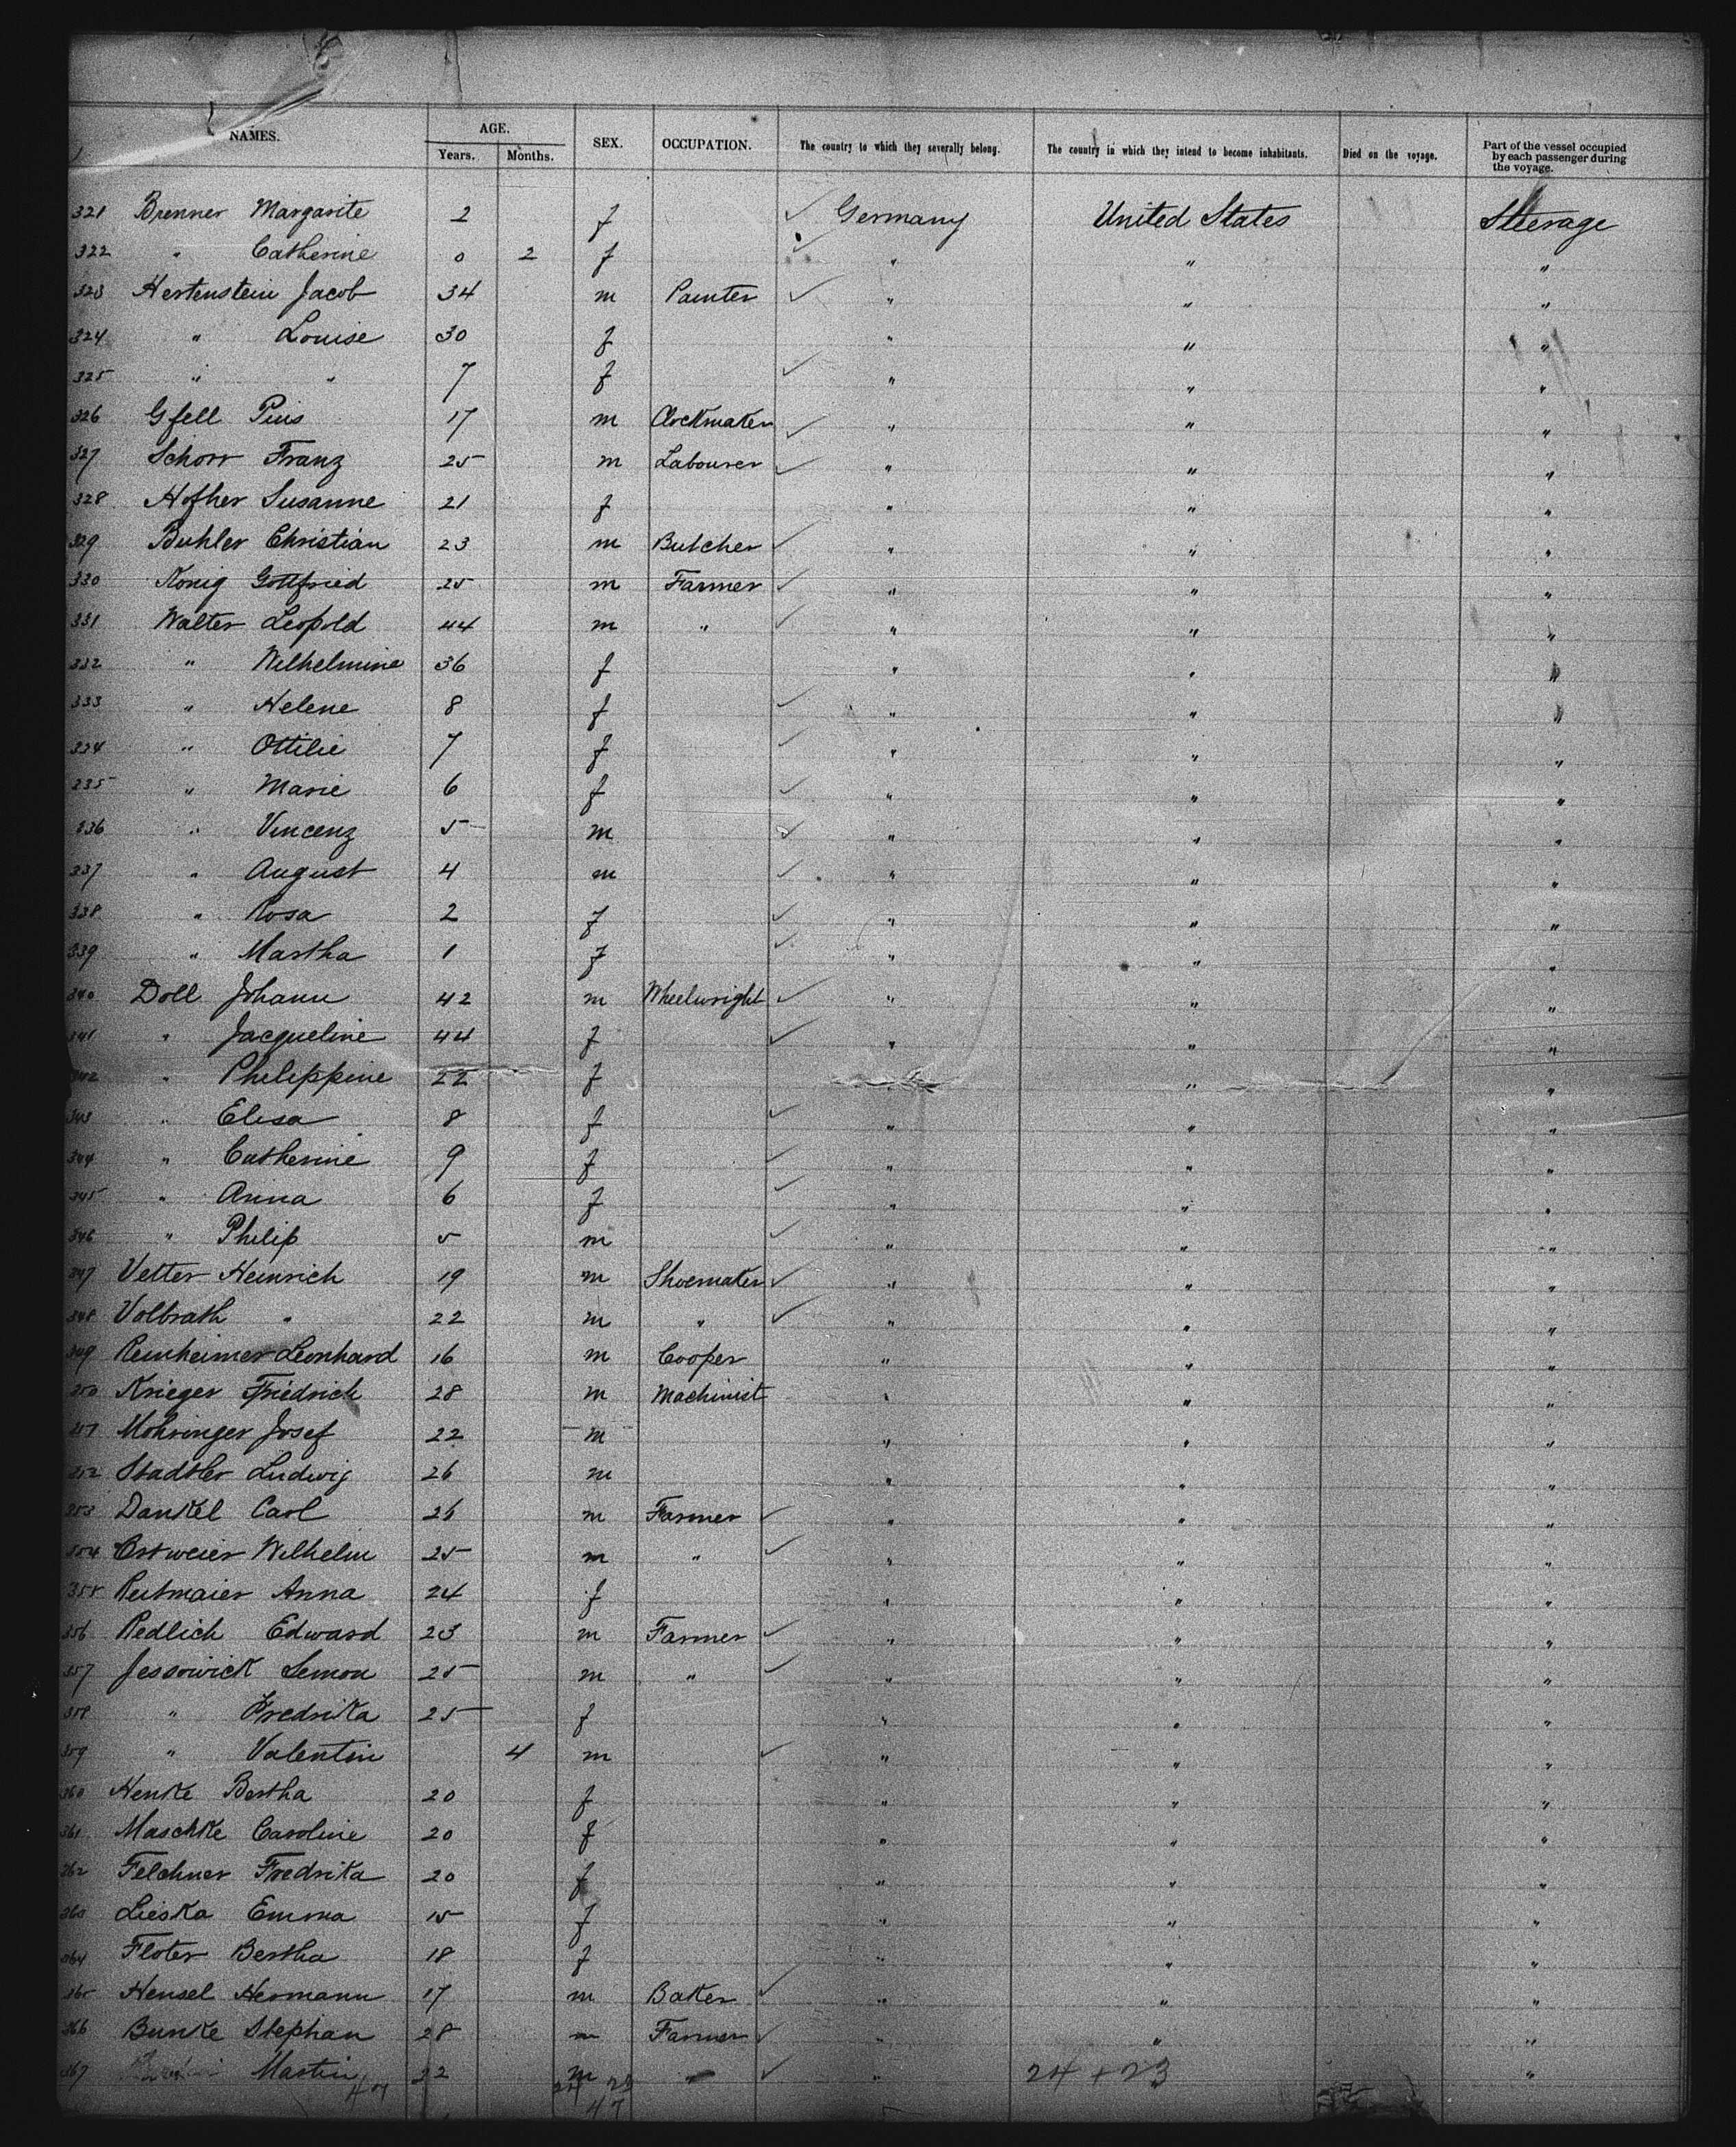 NAMES. AGE. SEX. OCCUPATION. The country to which they severally belong. The country in which they intend to become inhabitants. Died on the voyage. Part of the vessel occupied by each passenger during the voyage.
Years. Months.
321 Brenner Margarite 2 f ✓ Germany United States Steerage
322 " Catherine 0 2 f ✓ " " "
323 Hertenstein Jacob 34 m Painter ✓ " " "
324 " Louise 30 f " " "
325 " " 7 f ✓ " " "
326 Gfell Pius 17 m Clockmaker ✓ " " "
327 Schorr Franz 25 m Labourer ✓ " " "
328 Hofher Susanne 21 f " " "
329 Buhler Christian 23 m Butcher ✓ " " "
330 Konig Gottfried 25 m Farmer ✓ " " "
331 Walter Leopold 44 m " ✓ " " "
332 " Wilhelmine 36 f " " "
333 " Helene 8 f ✓ " " "
334 " Ottilie 7 f ✓ " " "
335 " Marie 6 f ✓ " " "
336 " Vincenz 5 m ✓ " " "
337 " August 4 m ✓ " " "
338 " Rosa 2 f ✓ " " "
339 " Martha 1 f ✓ " " "
340 Doll Johann 42 m Wheelwright ✓ " " "
341 " Jacqueline 44 f ✓ " " "
342 " Philippine 22 f " " "
343 " Elisa 8 f ✓ " " "
344 " Catherine 9 f ✓ " " "
345 " Anna 6 f ✓ " " "
346 " Philip 5 m ✓ " " "
347 Vetter Heinrich 19 m Shoemaker ✓ " " "
348 Volbrath " 22 m " ✓ " " "
349 Reinheimer Leonhard 16 m Cooper " " "
350 Krieger Friedrich 28 m Machinist " " "
351 Mohringer Josef 22 m " " "
352 Stadtler Ludwig 26 m " " "
353 Dankel Carl 26 m Farmer ✓ " " "
354 Ostweier Wilhelm 25 m " ✓ " " "
355 Reitmaier Anna 24 f " " "
356 Redlich Edward 23 m Farmer ✓ " " "
357 Jessowick Semon 25 m " ✓ " " "
358 " Fredrika 25 f " " "
359 " Valentin 4 m ✓ " " "
360 Henke Bertha 20 f " " "
361 Maschke Caroline 20 f " " "
362 Felchner Fredrika 20 f " " "
363 Lieska Emma 15 f " " "
364 Floter Bertha 18 f " " "
365 Hensel Hermann 17 m Baker ✓ " " "
366 Bunke Stephan 28 m Farmer ✓ " " "
367 Martin 22 m " ✓ " 24 + 23 "
47 24 23
47